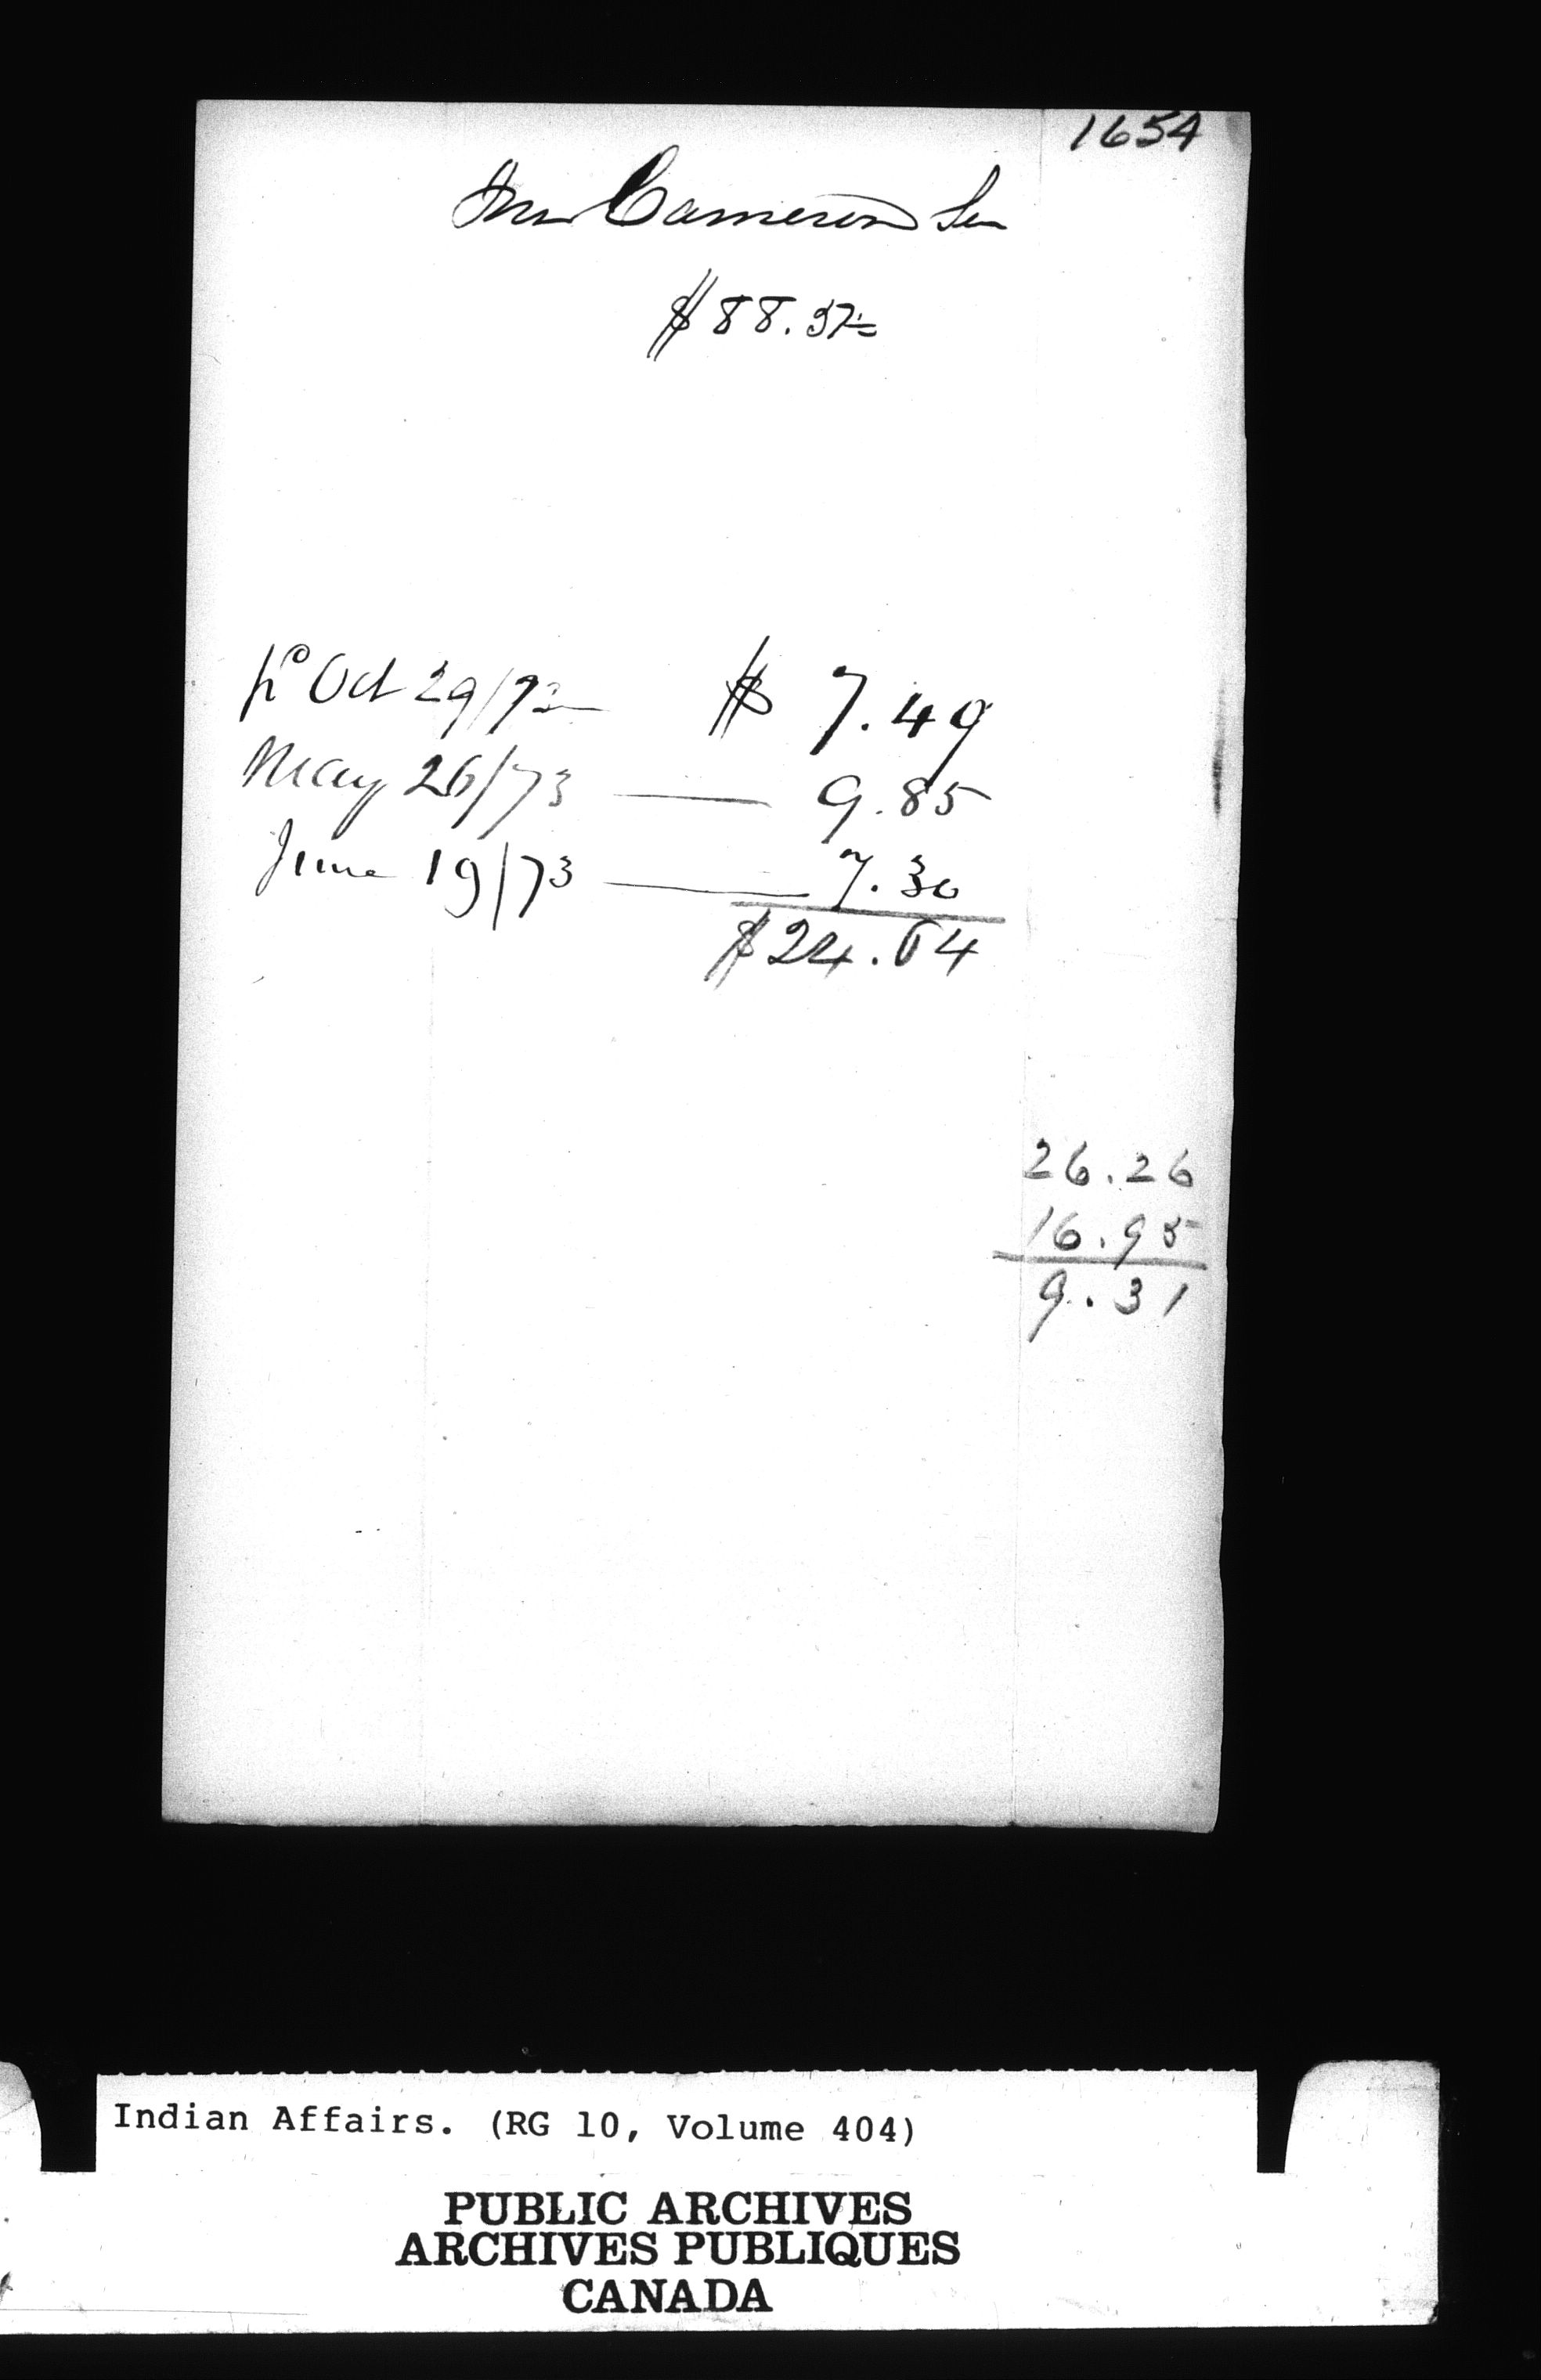 1654
Jno Cameron Sen
$88.37
pd Oct 29/72 $ 7.49
May 26/73 — 9.85
June 19/73 — 7.30
$24.64
26.26
16.95
9.31
Indian Affairs. (RG 10, Volume 404)
PUBLIC ARCHIVES
ARCHIVES PUBLIQUES
CANADA